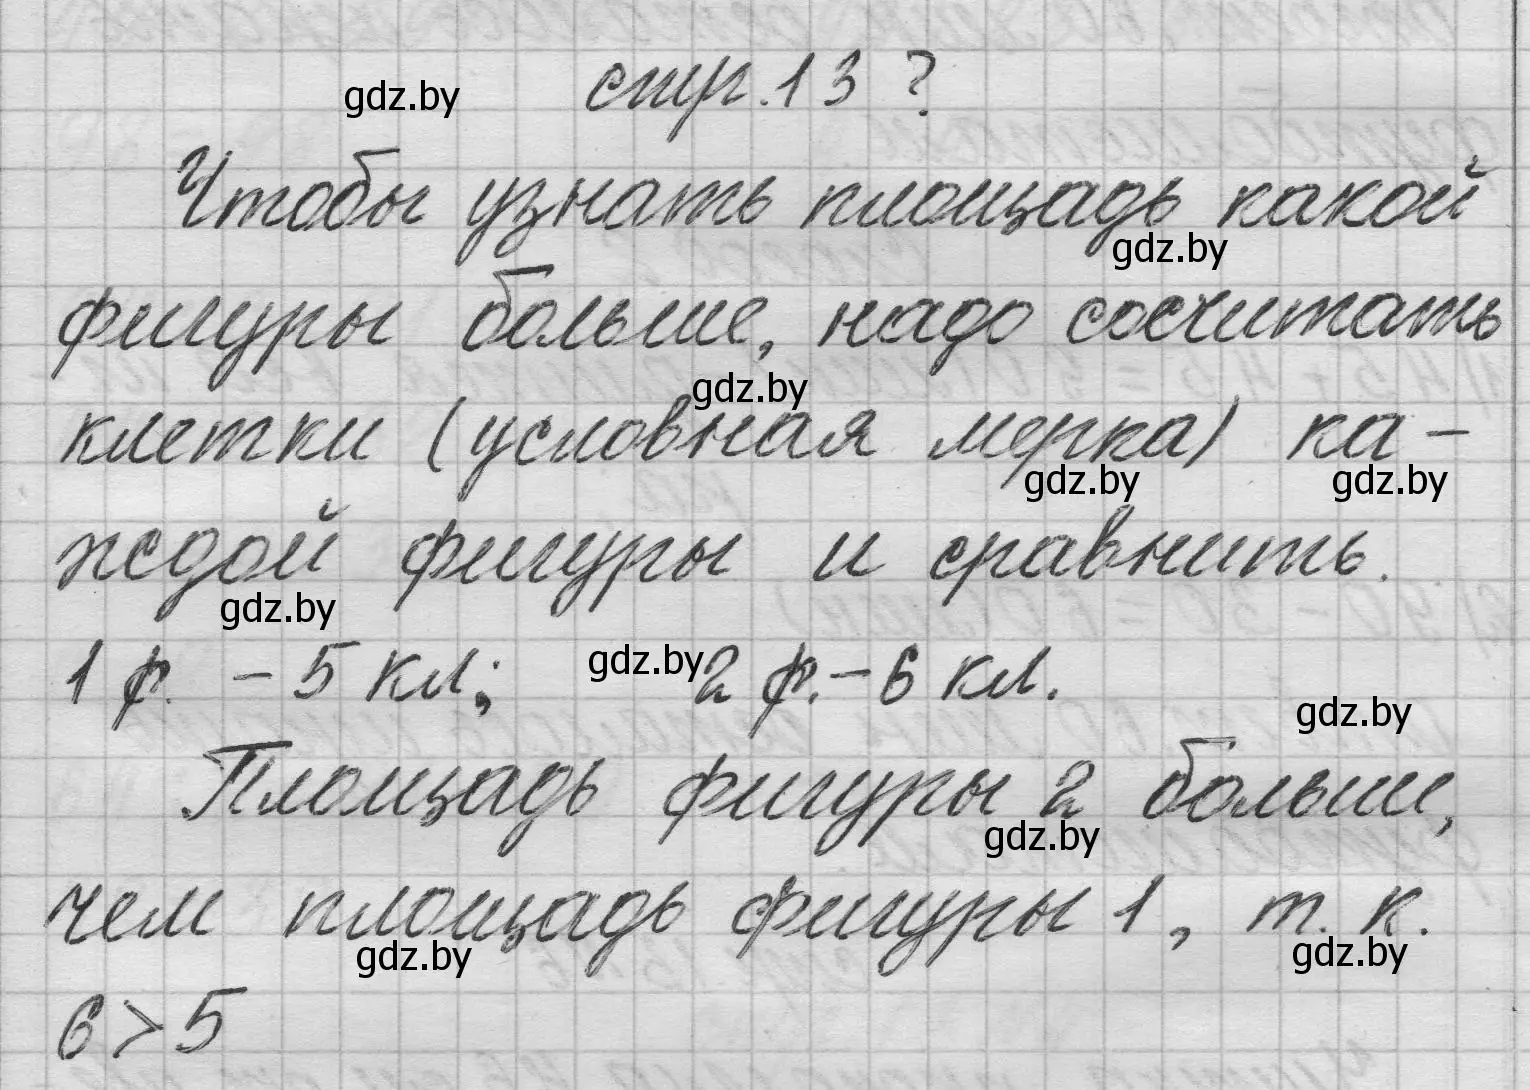 стр. 13 ?
gdz.by
Чтобы узнать площадь какой
gdz.by
фигуры больше, надо сосчитать
gdz.by
клетки (условная мерка) ка-
gdz.by gdz.by
ждой фигуры и сравнить.
gdz.by
1 ф. - 5 кл; 2 ф. - 6 кл.
gdz.by
gdz.by
Площадь фигуры 2 больше,
gdz.by
чем площадь фигуры 1, т. к.
gdz.by gdz.by
6 > 5